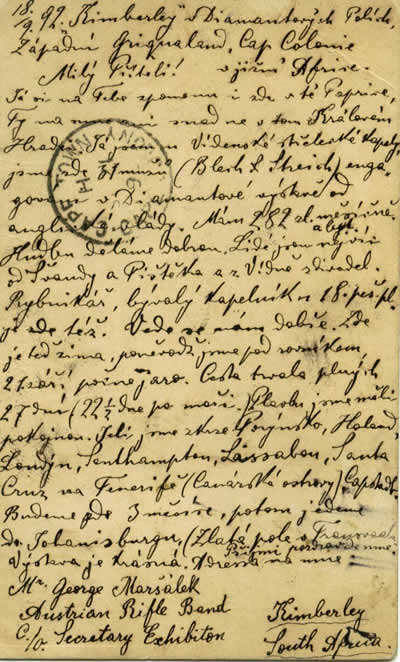 18./9. 92. Kimberley v Diamantových Polích,
Západní Griqualand, Cap Colonie
Milý Příteli! v jižní Africe.
Já si na Tebe zpomenu i zde v té Paprice,
Ty na mne si snad ne v tom Králověm
Hradci. Já jsem u Vídenské střelecké kapely,
jsme zde 51 mužů (Blech & Streich) enga-
gování v Diamantové výstavě od
anglické vlády. Mám 282 zl. měsíčně
a byt.
Hudbu děláme dobrou. Lidi jsou nejvíc
od Švandy a Pištěka a z Vídně divadel.
Rybnikář, bývalý kapelník u 18. pěš. pl.
je zde též. Vede se nám dobře. Zde
je teď zima, poněvadž jsme pod rovníkem
21 září, počne jaro. Cesta trvala plných
27 dní (22 ½ dne po moři.) Plavbu jsme měli
pokojnou. Jeli jsme skrze Porynsko, Holand,
Londyn, Southampton, Lissabon, Santa
Cruz na Tenerifě (Canarské ostrovy) Capstadt.
Budeme zde 3 měsíce, potom jedeme
do Johanisburgu, (Zlatá pole v Transvaalu
Přijmi pozdrav ode mne.
Výstava je krásná. Adressa na mne:
Mr. George Maršálek
Austrian Rifle Band Kimberley
C/o. Secretary Exhibiton South Africa.
CAPE TOWN